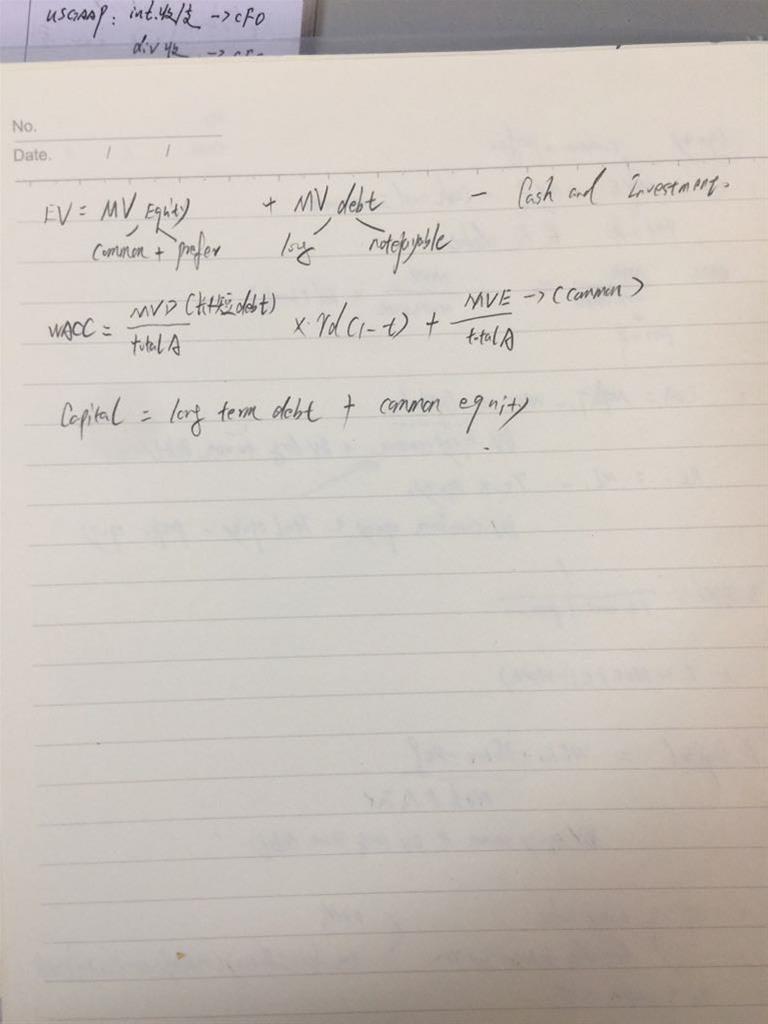 USGAAP: int.收/支 → CFO
div 收 →
No.
Date. / /
EV = MV Equity + MV debt - Cash and Investment.
common + prefer long notepayable
WACC = MVD (长+短debt) / total A × rd(1-t) + MVE → (common) / total A
Capital = long term debt + common equity